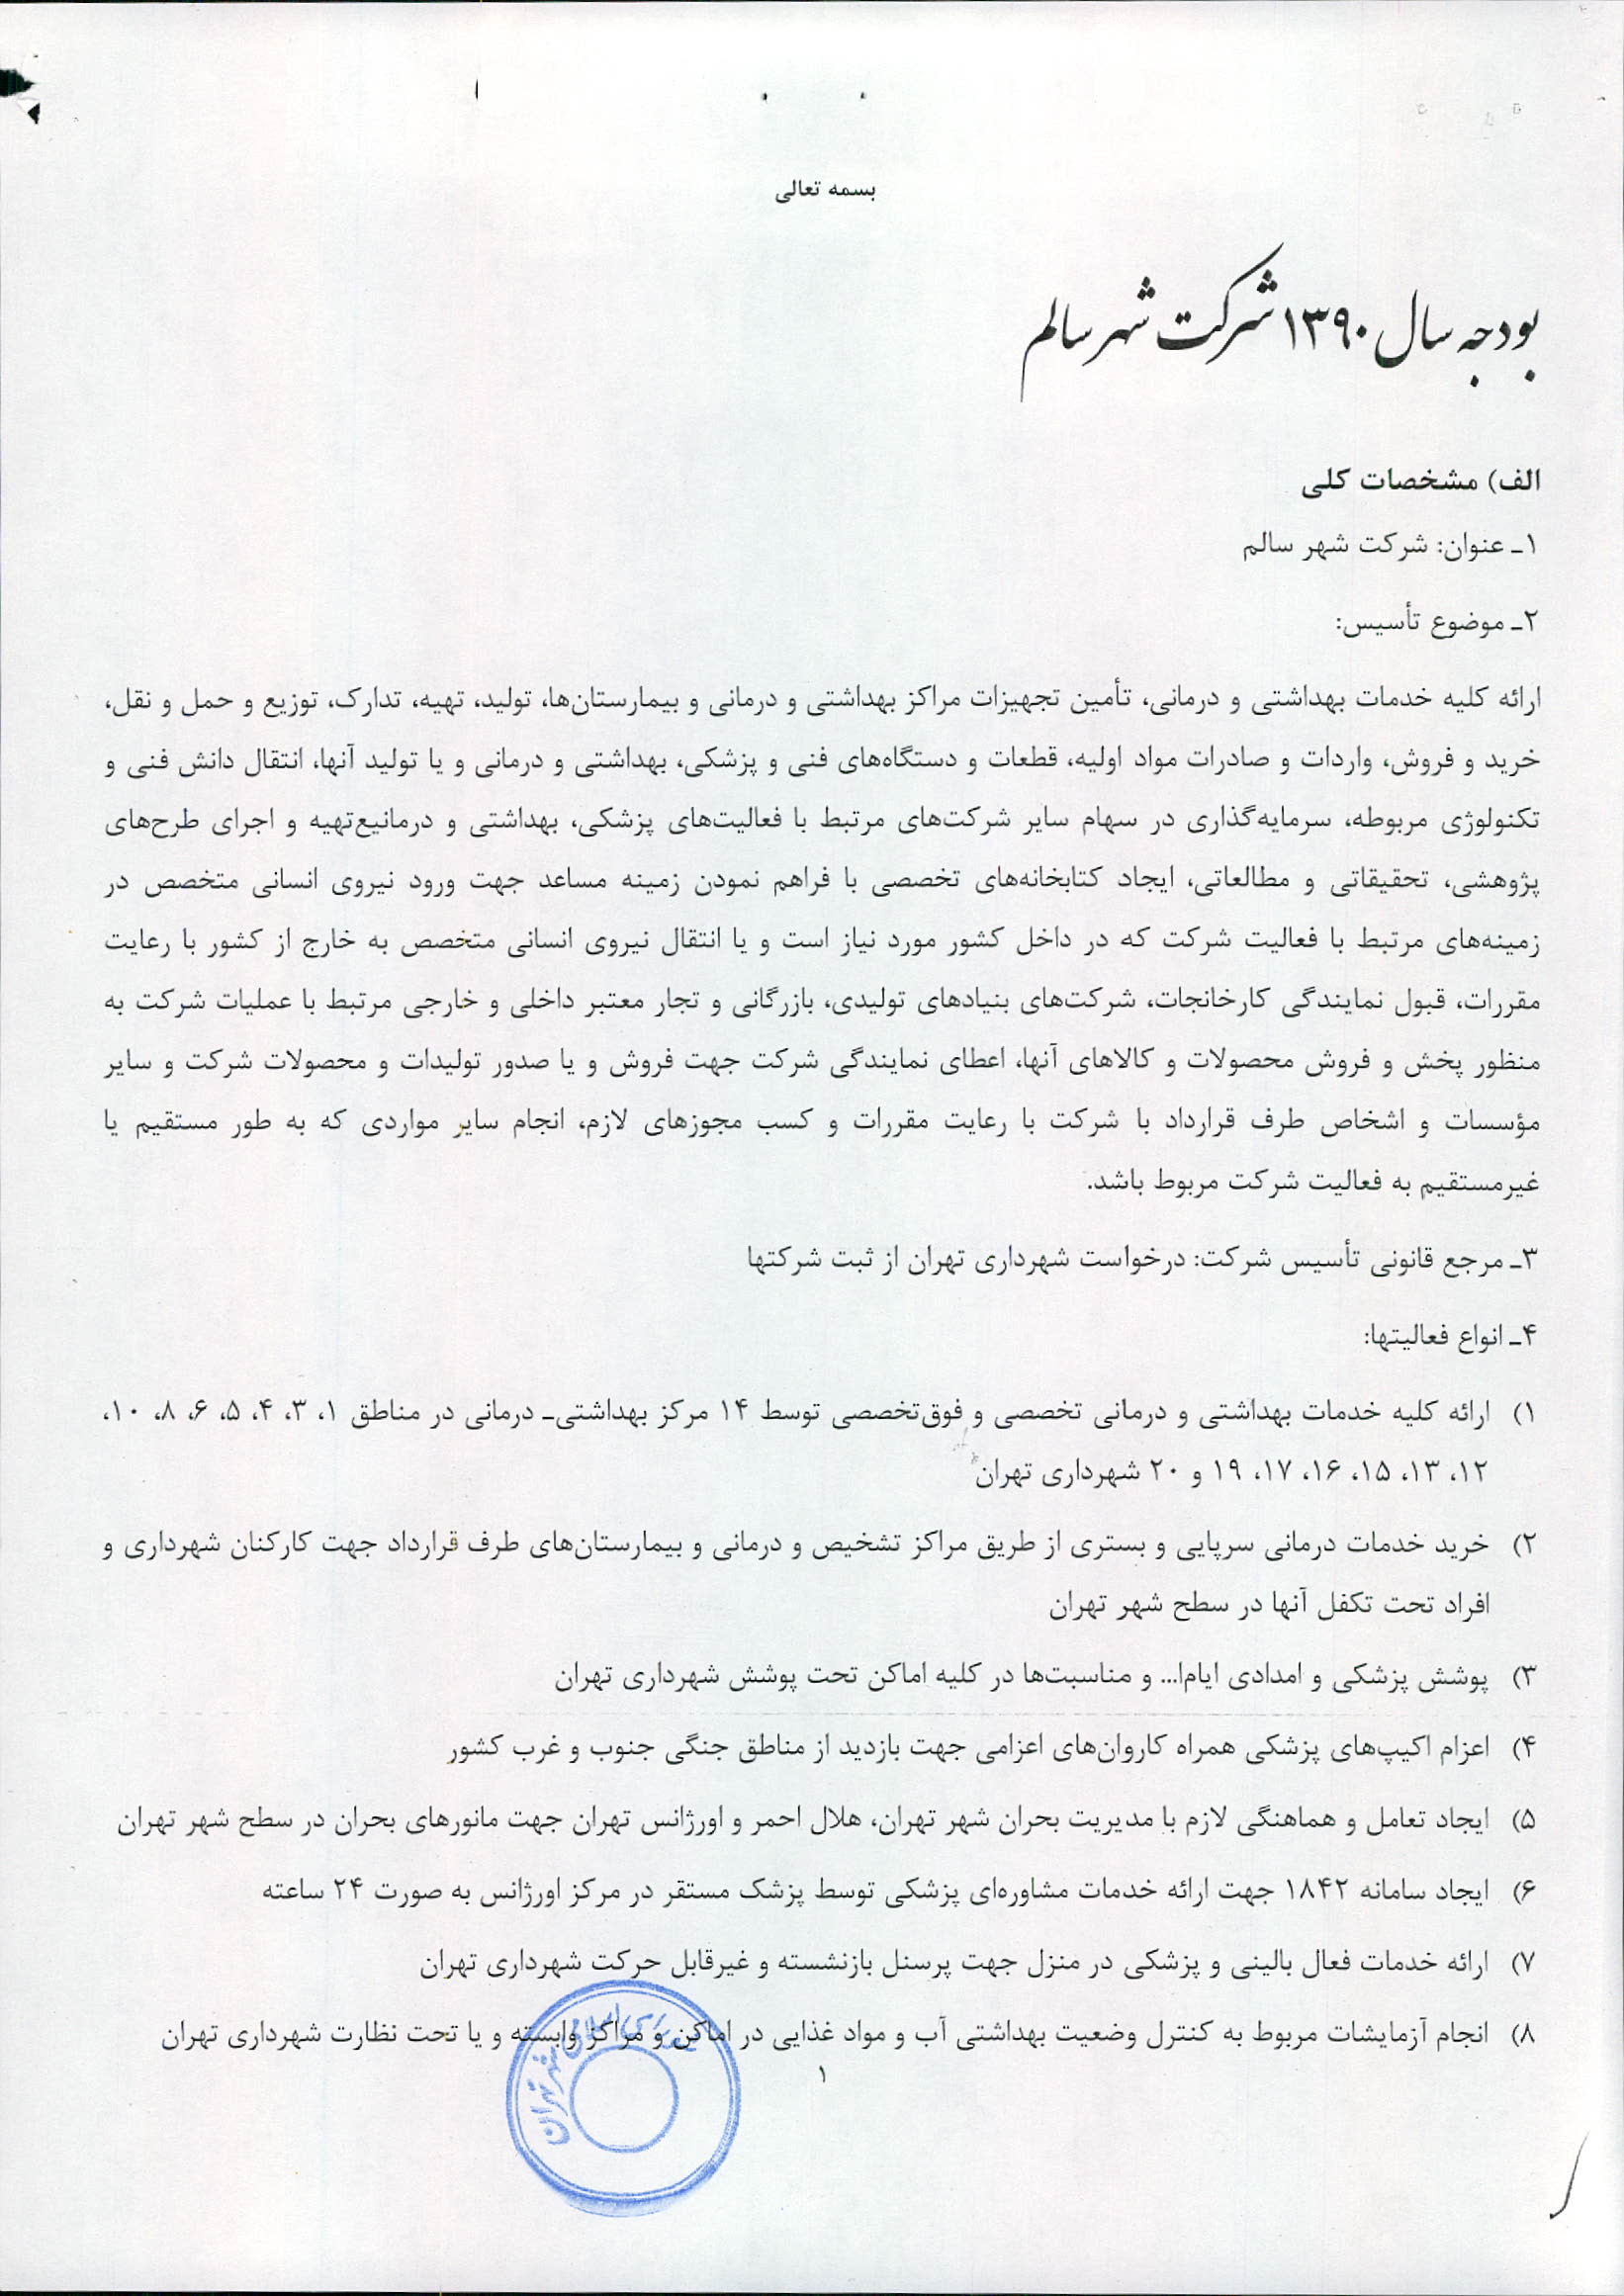 بسمه تعالی
بودجه سال ۱۳۹۰ شرکت شهر سالم
الف) مشخصات کلی
۱ـ عنوان: شرکت شهر سالم
۲ـ موضوع تأسیس:
ارائه کلیه خدمات بهداشتی و درمانی، تأمین تجهیزات مراکز بهداشتی و درمانی و بیمارستان‌ها، تولید، تهیه، تدارک، توزیع و حمل و نقل،
خرید و فروش، واردات و صادرات مواد اولیه، قطعات و دستگاه‌های فنی و پزشکی، بهداشتی و درمانی و یا تولید آنها، انتقال دانش فنی و
تکنولوژی مربوطه، سرمایه‌گذاری در سهام سایر شرکت‌های مرتبط با فعالیت‌های پزشکی، بهداشتی و درمانیع‌تهیه و اجرای طرح‌های
پژوهشی، تحقیقاتی و مطالعاتی، ایجاد کتابخانه‌های تخصصی با فراهم نمودن زمینه مساعد جهت ورود نیروی انسانی متخصص در
زمینه‌های مرتبط با فعالیت شرکت که در داخل کشور مورد نیاز است و یا انتقال نیروی انسانی متخصص به خارج از کشور با رعایت
مقررات، قبول نمایندگی کارخانجات، شرکت‌های بنیادهای تولیدی، بازرگانی و تجار معتبر داخلی و خارجی مرتبط با عملیات شرکت به
منظور پخش و فروش محصولات و کالاهای آنها، اعطای نمایندگی شرکت جهت فروش و یا صدور تولیدات و محصولات شرکت و سایر
مؤسسات و اشخاص طرف قرارداد با شرکت با رعایت مقررات و کسب مجوزهای لازم، انجام سایر مواردی که به طور مستقیم یا
غیرمستقیم به فعالیت شرکت مربوط باشد.
۳ـ مرجع قانونی تأسیس شرکت: درخواست شهرداری تهران از ثبت شرکتها
۴ـ انواع فعالیتها:
۱) ارائه کلیه خدمات بهداشتی و درمانی تخصصی و فوق‌تخصصی توسط ۱۴ مرکز بهداشتی‌ـ درمانی در مناطق ۱، ۳، ۴، ۵، ۶، ۸، ۱۰،
۱۲، ۱۳، ۱۵، ۱۶، ۱۷، ۱۹ و ۲۰ شهرداری تهران
۲) خرید خدمات درمانی سرپایی و بستری از طریق مراکز تشخیص و درمانی و بیمارستان‌های طرف قرارداد جهت کارکنان شهرداری و
افراد تحت تکفل آنها در سطح شهر تهران
۳) پوشش پزشکی و امدادی ایام‌ا... و مناسبت‌ها در کلیه اماکن تحت پوشش شهرداری تهران
۴) اعزام اکیپ‌های پزشکی همراه کاروان‌های اعزامی جهت بازدید از مناطق جنگی جنوب و غرب کشور
۵) ایجاد تعامل و هماهنگی لازم با مدیریت بحران شهر تهران، هلال احمر و اورژانس تهران جهت مانورهای بحران در سطح شهر تهران
۶) ایجاد سامانه ۱۸۴۲ جهت ارائه خدمات مشاوره‌ای پزشکی توسط پزشک مستقر در مرکز اورژانس به صورت ۲۴ ساعته
۷) ارائه خدمات فعال بالینی و پزشکی در منزل جهت پرسنل بازنشسته و غیرقابل حرکت شهرداری تهران
۸) انجام آزمایشات مربوط به کنترل وضعیت بهداشتی آب و مواد غذایی در اماکن و مراکز وابسته و یا تحت نظارت شهرداری تهران
شورای اسلامی شهر تهران
۱